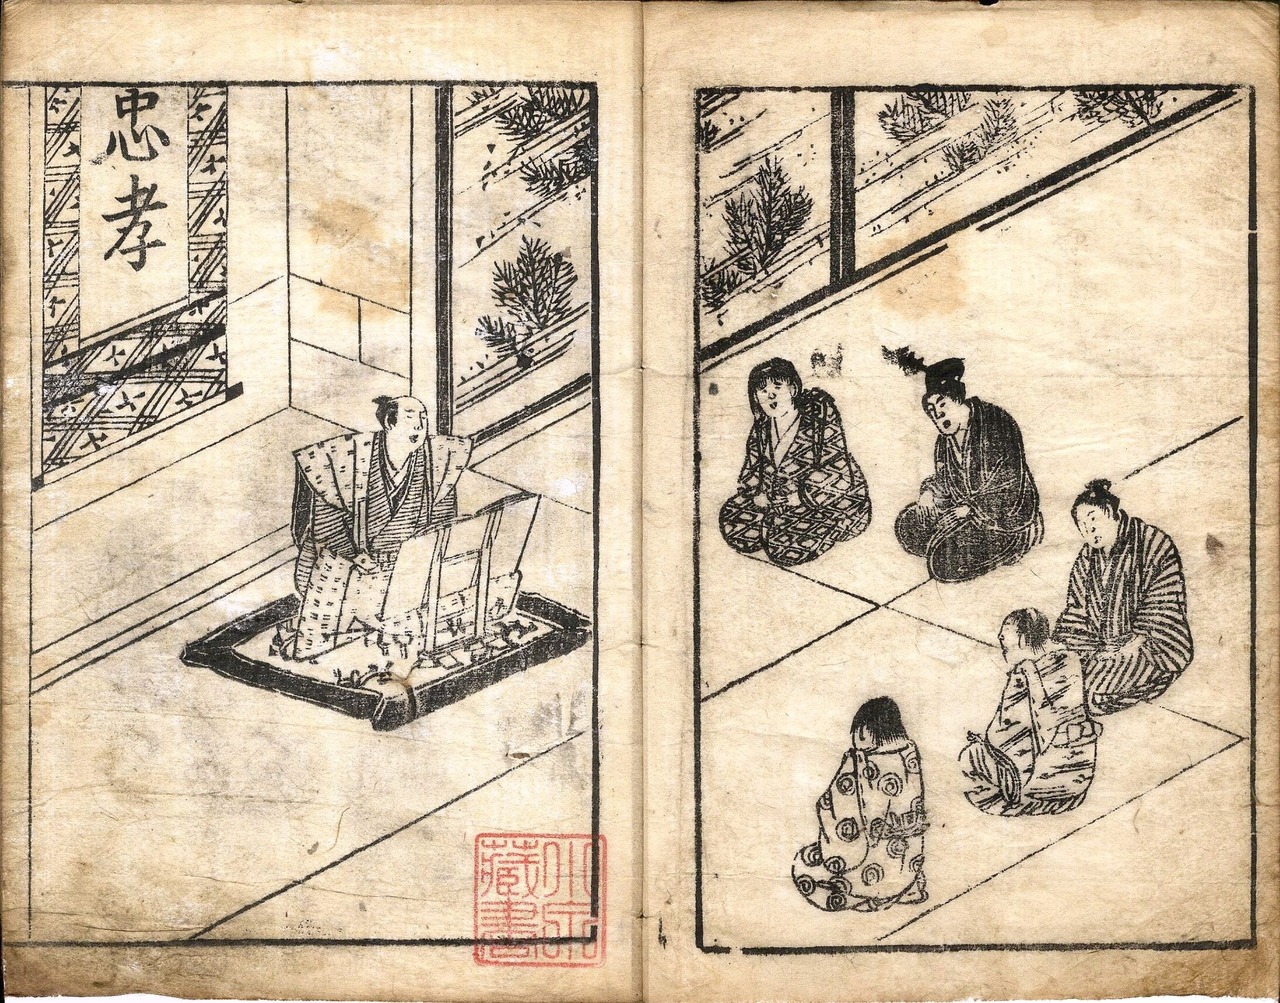 忠孝
藏書